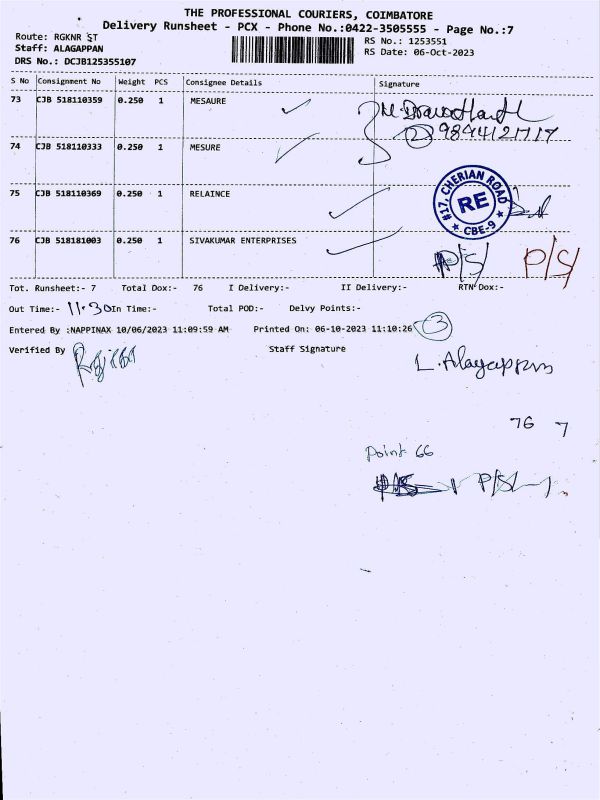 THE PROFESSIONAL COURIERS, COIMBATORE
Delivery Runsheet - PCX - Phone No.:0422-3505555 - Page No.:7
Route: RGKNR ST
RS No.: 1253551
Staff: ALAGAPPAN
RS Date: 06-Oct-2023
DRS No.: DCJB125355107
S No Consignment No Weight PCS Consignee Details Signature
73 CJB 518110359 0.250 1 MESAURE
9844121717
74 CJB 518110333 0.250 1 MESURE
75 CJB 518110369 0.250 1 RELAINCE
#17, CHERIAN ROAD
RE
★ CBE-9 ★
76 CJB 518181003 0.250 1 SIVAKUMAR ENTERPRISES
P/S P/S
Tot. Runsheet:- 7 Total Dox:- 76 I Delivery:- II Delivery:- RTN Dox:-
Out Time:- 11.30 In Time:- Total POD:- Delvy Points:-
Entered By :NAPPINAX 10/06/2023 11:09:59 AM Printed On: 06-10-2023 11:10:26 3
Verified By Staff Signature
L. Alagappan
76 7
Point 66
P/S